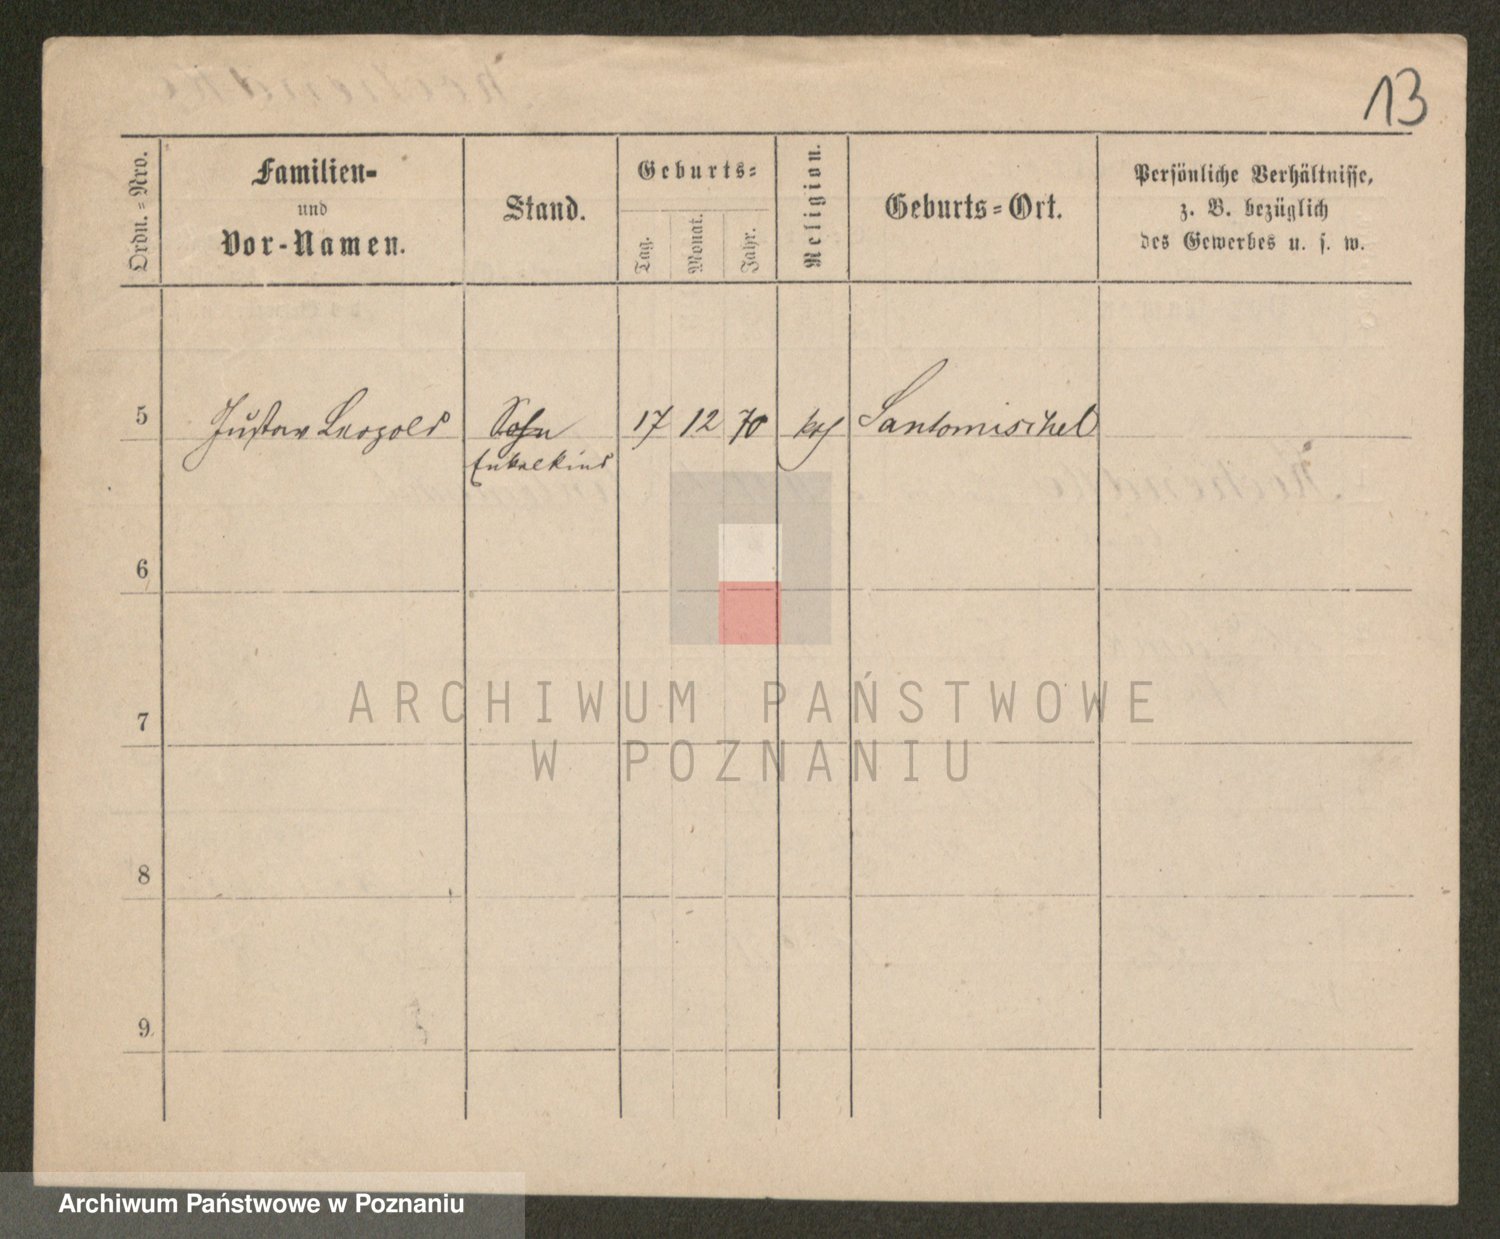 13
Ordn.=Nro.
Familien=
und
Vor-Namen.
Stand.
Geburts=
Tag.
Monat.
Jahr.
Religion.
Geburts=Ort.
Persönliche Verhältnisse,
z. B. bezüglich
des Gewerbes u. s. w.
5 Gustav Leopold Sohn 17 12 70 kath Santomischel
Enkelkind
6
7
8
9
ARCHIWUM PAŃSTWOWE
W POZNANIU
Archiwum Państwowe w Poznaniu